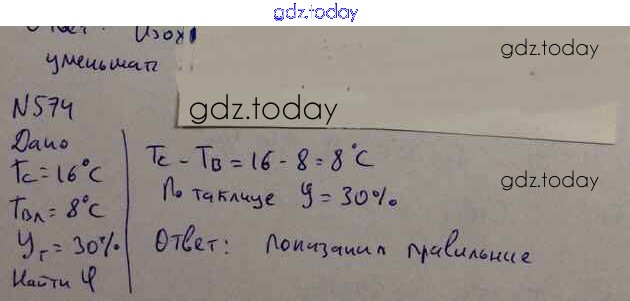 gdz.today
Ответ: Изохо
gdz.today
уменьшат
gdz.today
N 574
Дано
Tc = 16°C
Tвл = 8°C
Yг = 30%
Найти φ
Tc - Tв = 16 - 8 = 8°C
По таблице y = 30%
gdz.today
Ответ: показания правильные